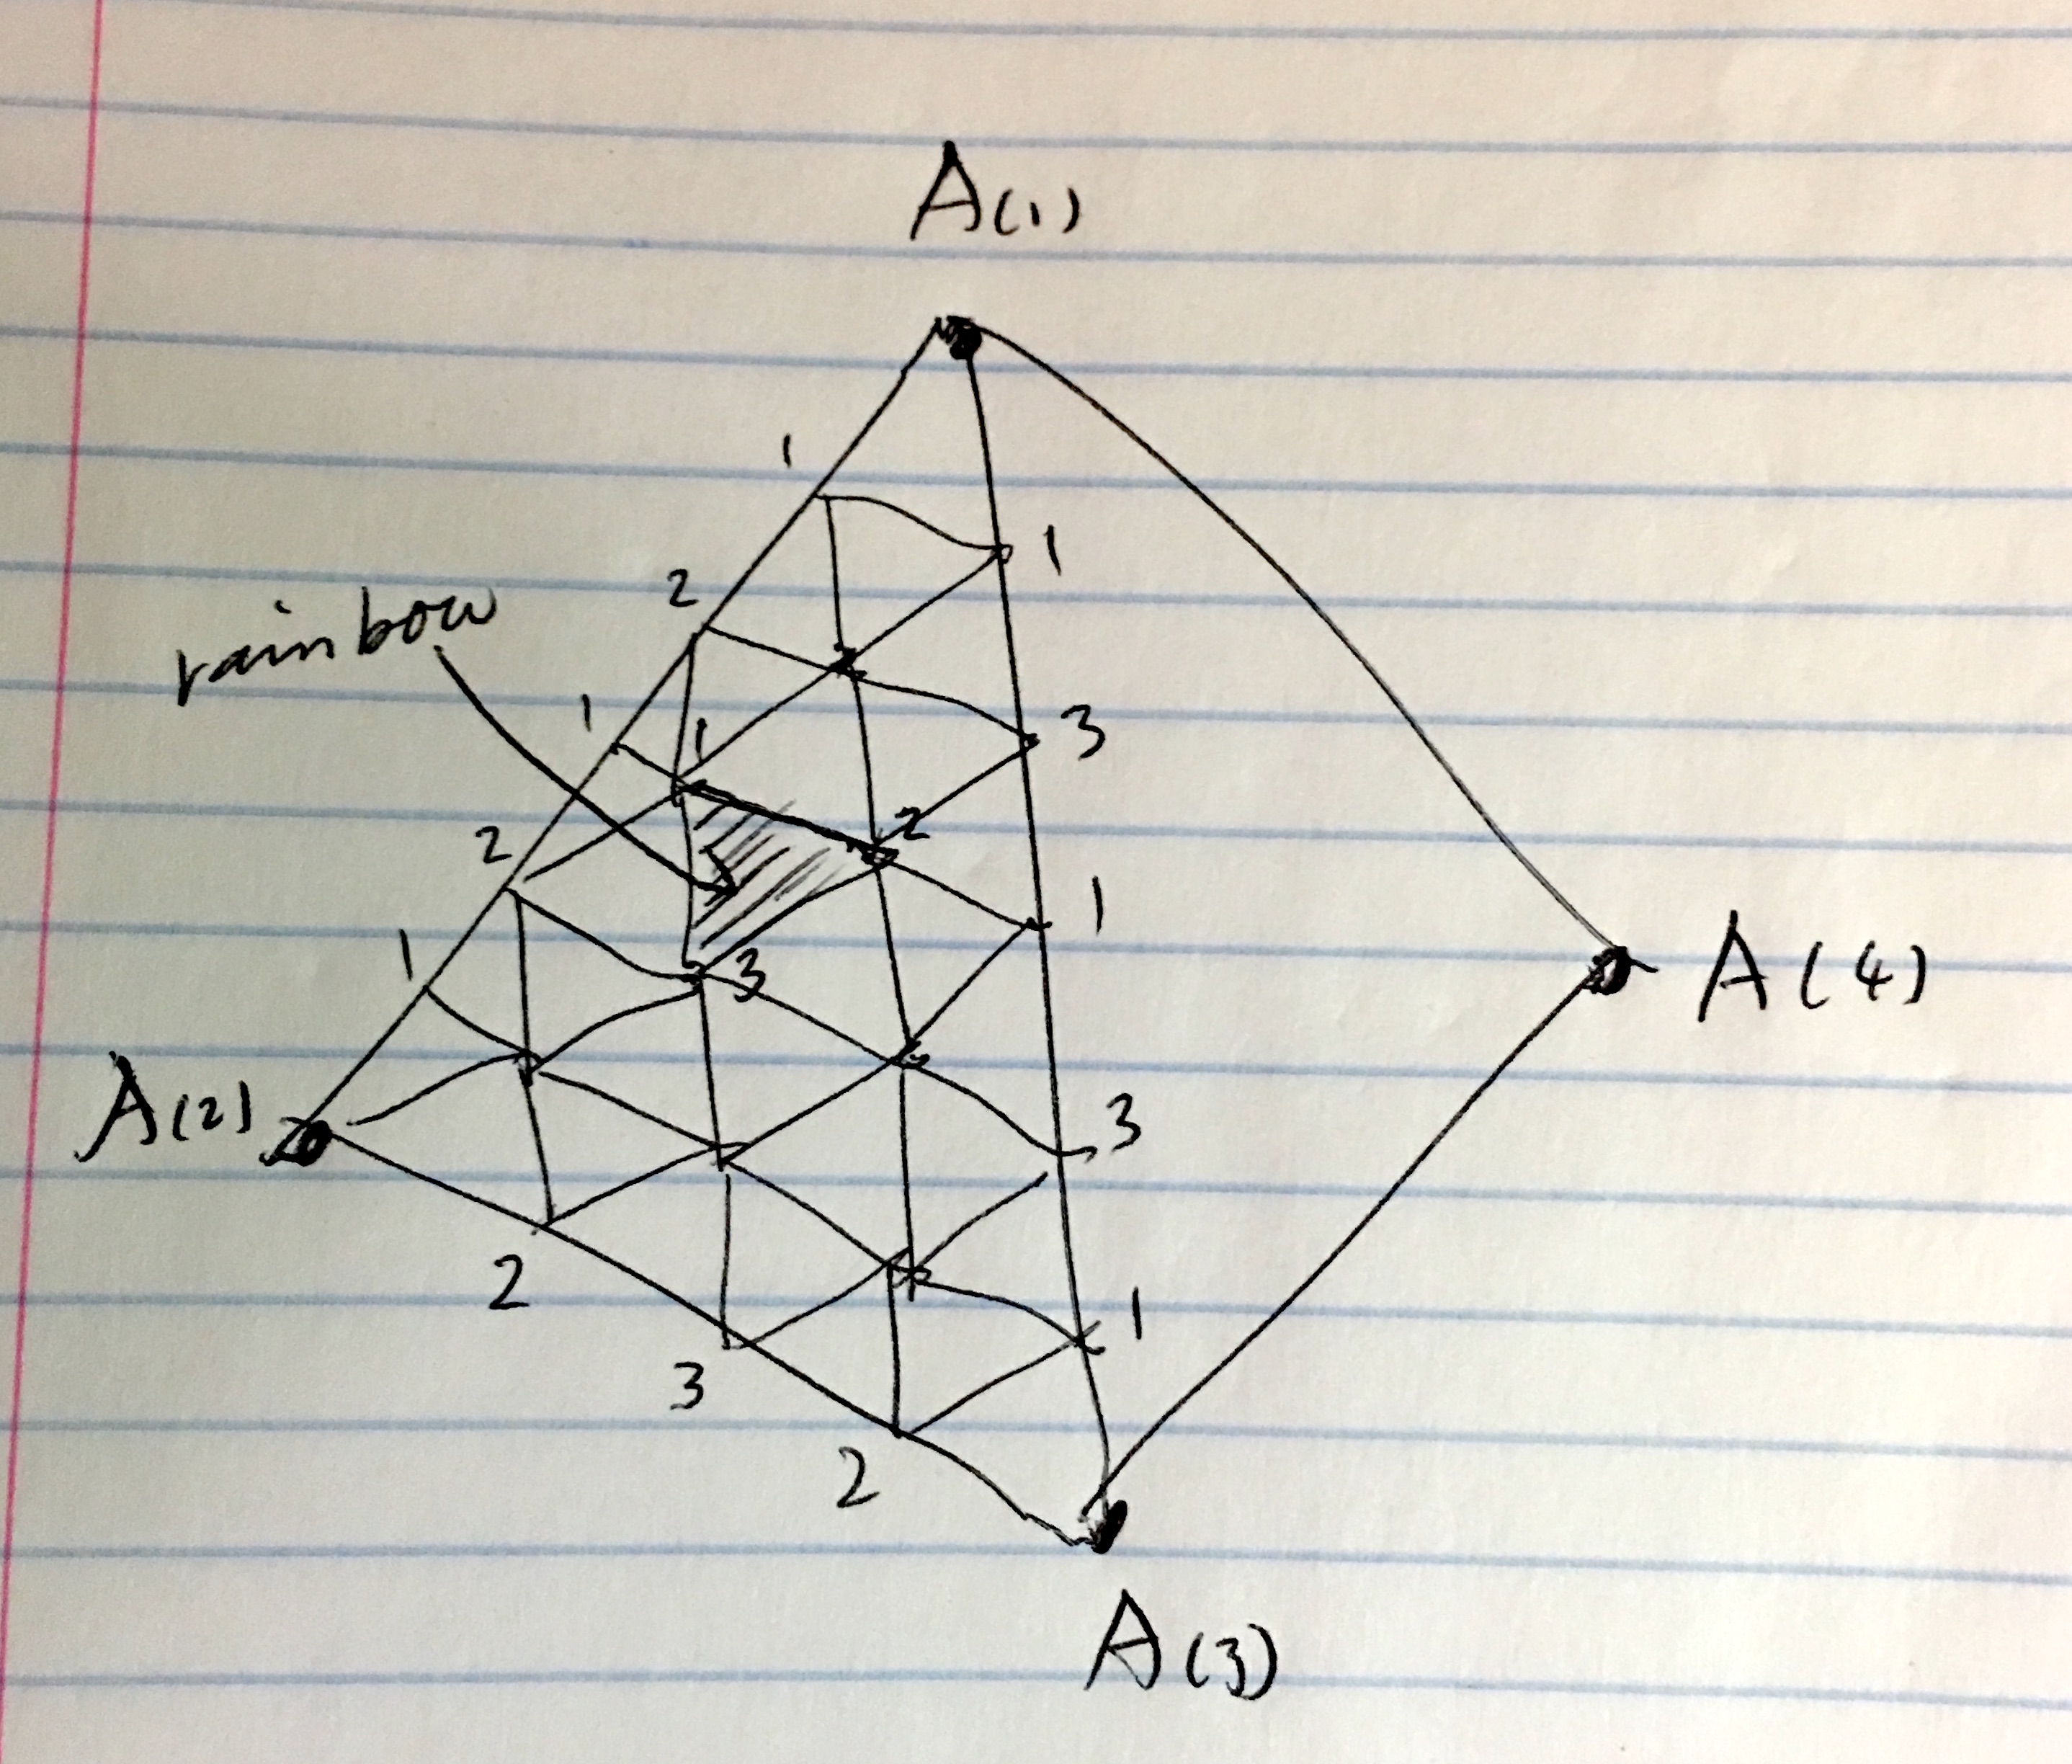 A(1)
1
1
2
rainbow
1
1
3
2
2
1
1
3
A(4)
A(2)
3
2
1
3
2
A(3)